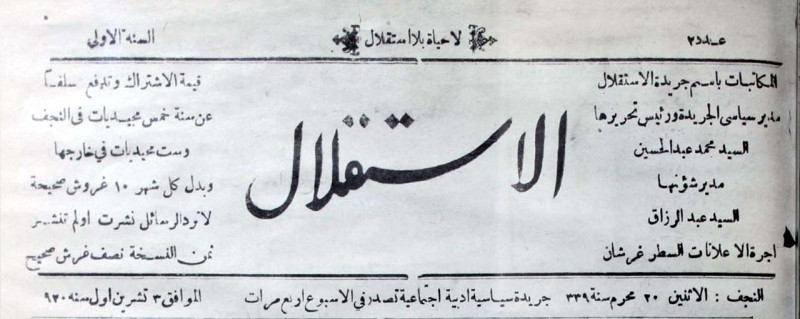 عدد ٢
لا حياة بلا استقلال
السنة الاولى
المكاتبات باسم جريدة الاستقلال
مدير سياسى الجريدة ورئيس تحريرها
السيد محمد عبد الحسين
مدير شؤنها
السيد عبد الرزاق
اجرة الاعلانات السطر غرشان
الاستقلال
قيمة الاشتراك وتدفع سلفا
عن سنة خمس مجيديات فى النجف
وست مجيديات فى خارجها
وبدل كل شهر ١٠ غروش صحيحة
لا ترد الرسائل نشرت او لم تنشر
ثمن النسخة نصف غرش صحيح
النجف : الاثنين ٢٠ محرم سنة ٣٣٩ جريدة سياسية ادبية اجتماعية تصدر فى الاسبوع اربع مرات الموافق ٣ تشرين اول سنه ٩٢٠